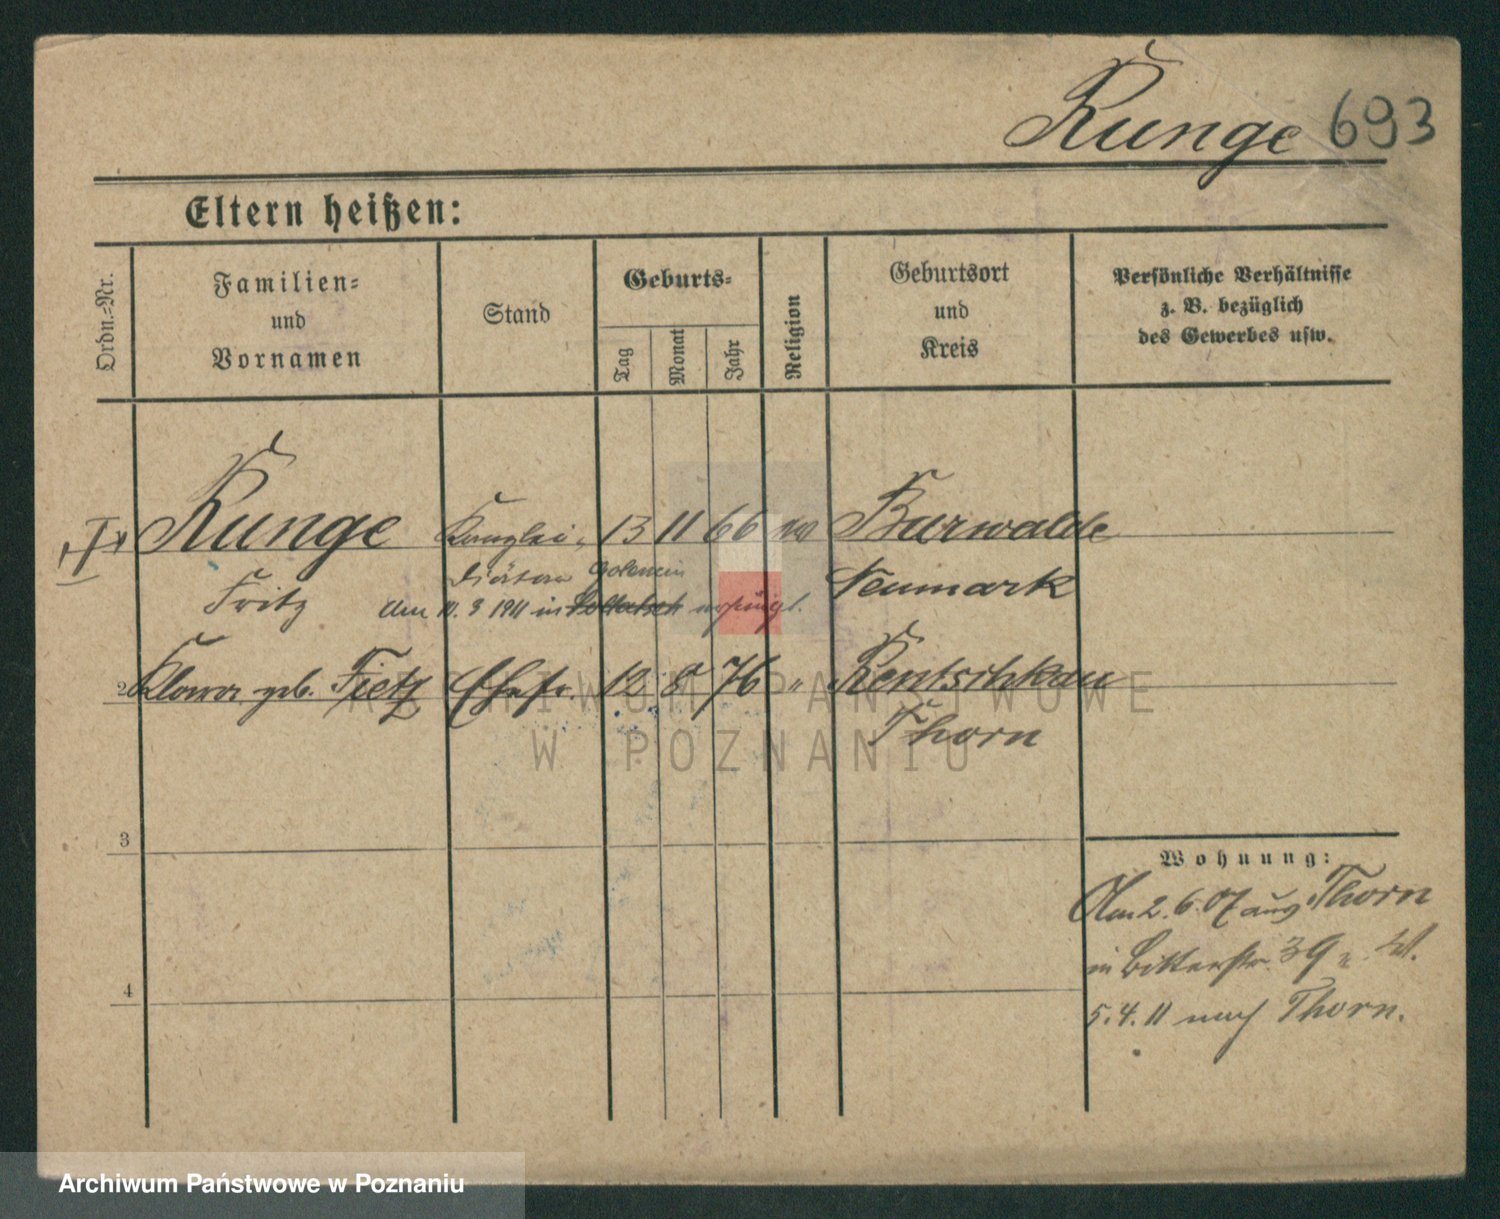 Runge 693
Eltern heißen:
Ordn.=Nr.
Familien=
und
Vornamen
Stand
Geburts=
Tag
Monat
Jahr
Religion
Geburtsort
und
Kreis
Persönliche Verhältnisse
z. B. bezüglich
des Gewerbes usw.
Runge Kanzlei- 13 11 66 ev Barwalde
Fritz Diätar Neumark
den 10. 3 1911 in
2 Klara geb. Fietz Ehefr. 12 8 76 " Rentschkau
Thorn
3
4
Wohnung:
Am 2. 6. 07 aus Thorn
in Bitterstr. 39
5. 4. 11 nach Thorn.
ARCHIWUM PAŃSTWOWE
W POZNANIU
Archiwum Państwowe w Poznaniu